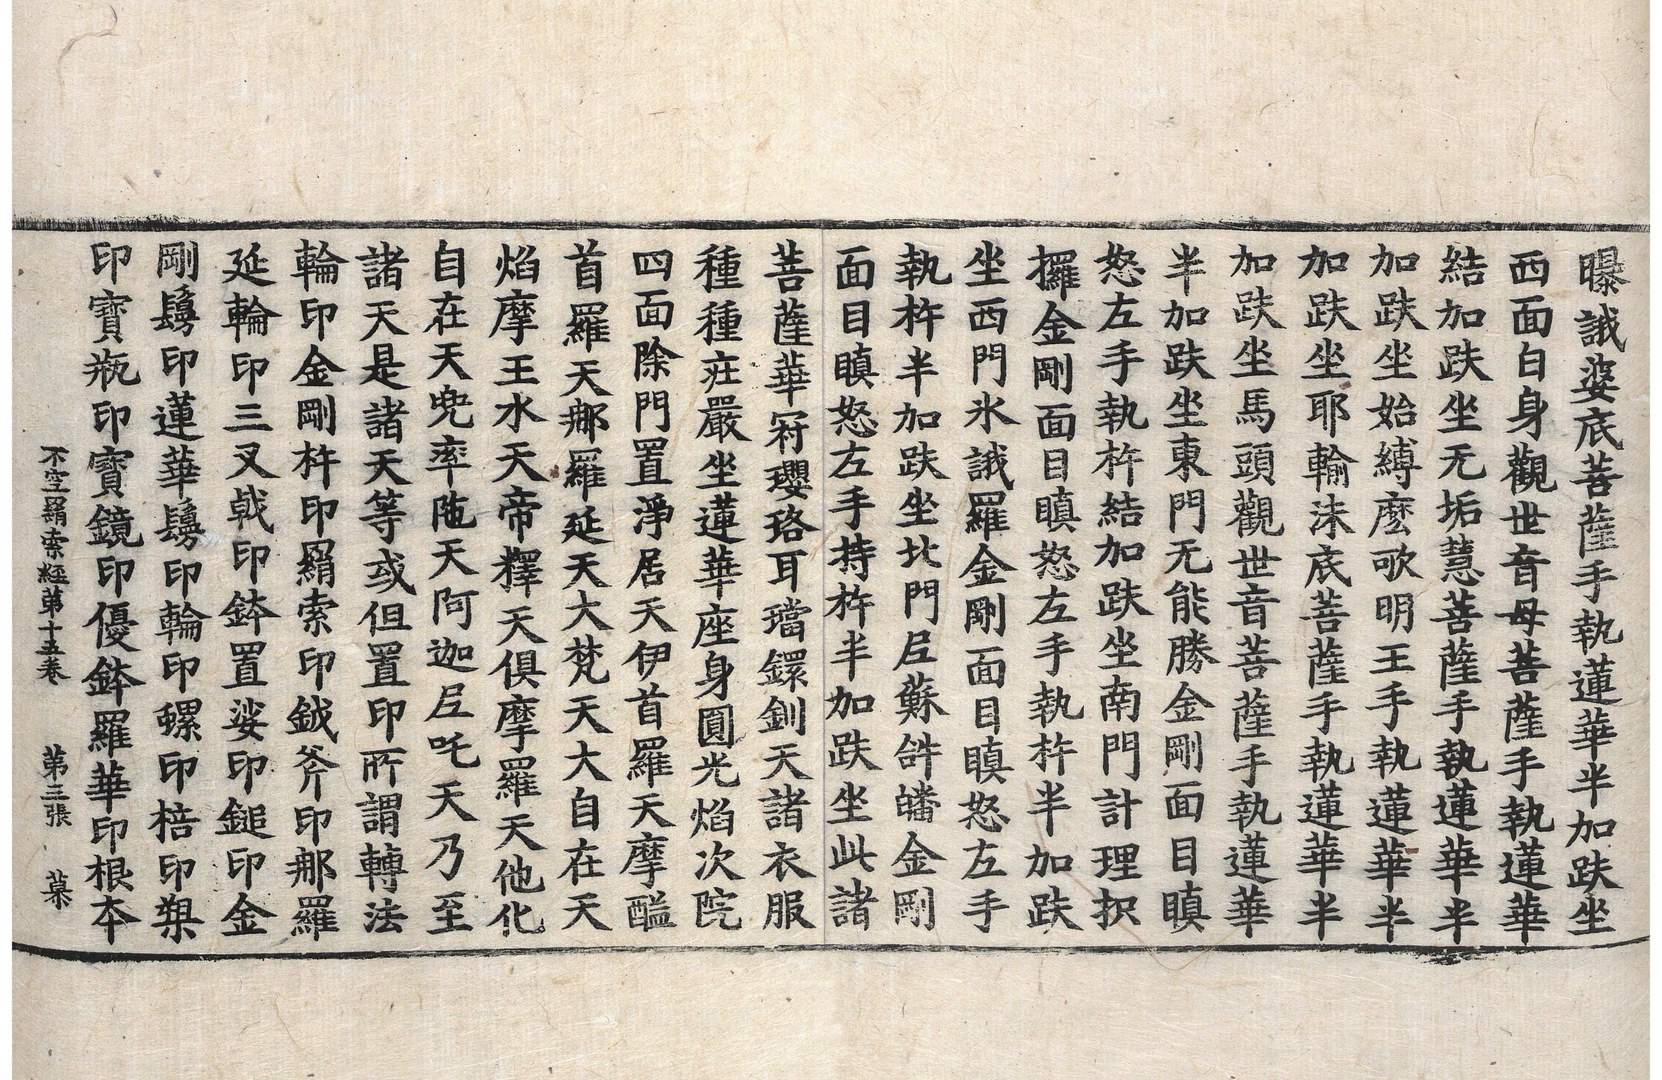 曝誐婆底菩薩手執蓮華半加趺坐
西面白身觀世音母菩薩手執蓮華
結加趺坐无垢慧菩薩手執蓮華半
加趺坐始縛麼歌明王手執蓮華半
加趺坐耶輸沫底菩薩手執蓮華半
加趺坐馬頭觀世音菩薩手執蓮華
半加趺坐東門无能勝金剛面目瞋
怒左手執杵結加趺坐南門計理枳
攞金剛面目瞋怒左手執杵半加趺
坐西門氷誐羅金剛面目瞋怒左手
執杵半加趺坐北門𡰱蘇皤金剛
面目瞋怒左手持杵半加趺坐此諸
菩薩華冠瓔珞耳璫鐶釧天諸衣服
種種莊嚴坐蓮華座身圓光焰次院
四面除門置淨居天伊首羅天摩醯
首羅天那羅延天大梵天大自在天
焰摩王水天帝釋天俱摩羅天他化
自在天兜率陁天阿迦𡰱吒天乃至
諸天是諸天等或但置印所謂轉法
輪印金剛杵印羂索印鉞斧印那羅
延輪印三叉戟印鉢置娑印鎚印金
剛鬘印蓮華鬘印輪印螺印棓印槊
印寶瓶印寶鏡印優鉢羅華印根本
不空羂索經第十五卷 第三張 菓